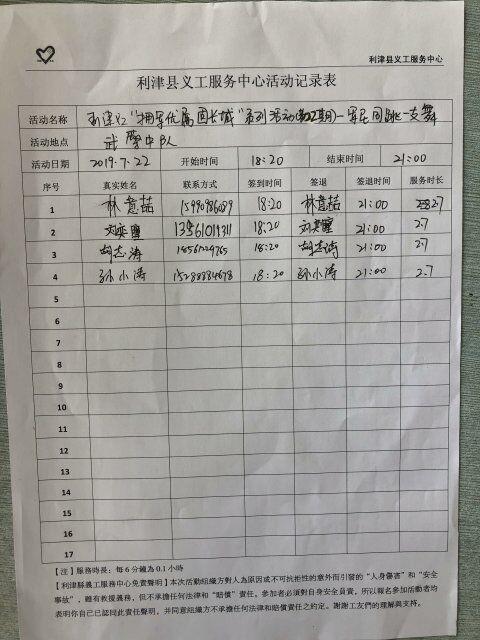 利津县义工服务中心
利津县义工服务中心活动记录表
活动名称 "拥军优属固长城"系列活动(22期)一军民同跳一支舞
活动地点 武警中队
活动日期 2019.7.22 开始时间 18:20 结束时间 21:00
序号 真实姓名 联系方式 签到时间 签退 签退时间 服务时长
1 林意喆 15990986089 18:20 林意喆 21:00 2.7
2 13561019311 18:20 21:00 2.7
3 胡志涛 18561729765 18:20 胡志涛 21:00 2.7
4 孙小涛 15288884678 18:20 孙小涛 21:00 2.7
5
6
7
8
9
10
11
12
13
14
15
16
17
【注】服務時長：每6分鐘為0.1小時
【利津縣義工服務中心免責聲明】本次活動組織方對人為原因或不可抗拒性的意外而引發的"人身傷害"和"安全
事故"，雖有救援義務，但不承擔任何法律和"賠償"責任。參加者必須對自身安全負責，所以報名參加活動者均
表明你自己已認同此責任聲明，并同意組織方不承擔任何法律和賠償責任之約定。謝謝工友們的理解與支持。